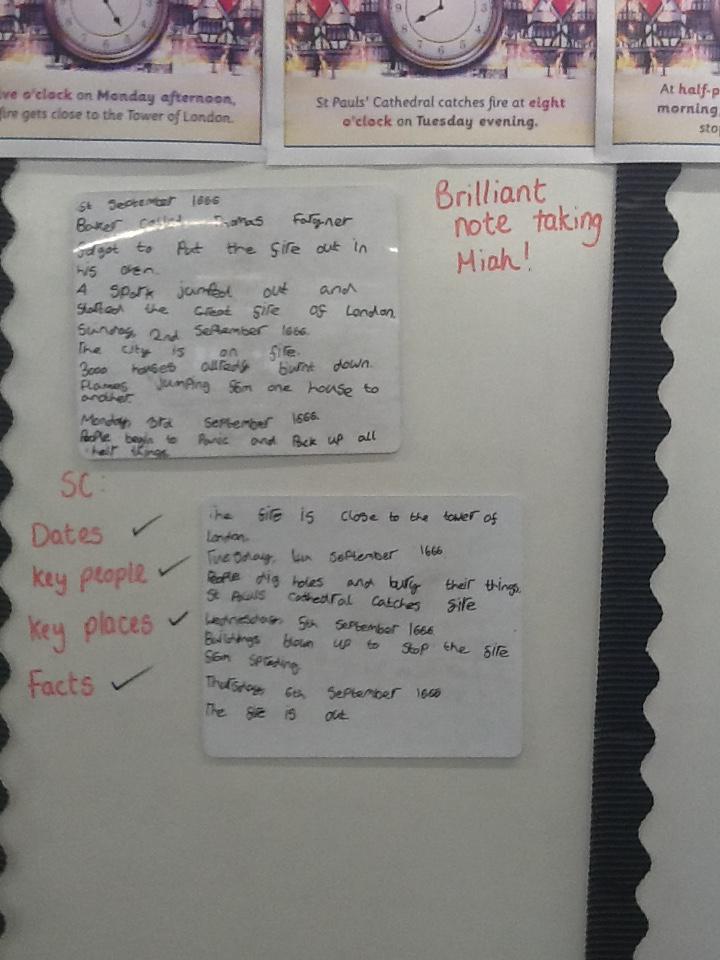 ive o'clock on Monday afternoon,
fire gets close to the Tower of London.
St Pauls' Cathedral catches fire at eight
o'clock on Tuesday evening.
At half-p
morning,
stop
Brilliant
note taking
Miah!
St September 1666
Baker called Thomas
forgot to Put the fire out in
his oven.
A spark jumped out and
started the Great fire of London
Sunday, 2nd September 1666.
The city is on fire.
3000 houses allready burnt down.
Flames jumping from one house to
another
Monday 3rd September 1666.
People begin to Panic and Pack up all
their things.
SC:
Dates ✓
key people ✓
key places ✓
Facts ✓
The fire is close to the tower of
London.
Tuesday, 4th September 1666
People dig holes and bury their things.
St Pauls Cathedral catches fire
Wednesday 5th September 1666
Buildings blown up to stop the fire
from
Thursday 6th September 1666
The fire is out